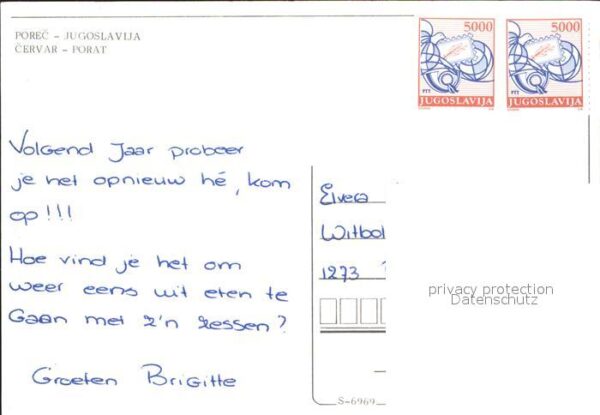 POREČ – JUGOSLAVIJA
ČERVAR – PORAT
5000
PTT
JUGOSLAVIJA
5000
PTT
JUGOSLAVIJA
Volgend Jaar probeer
je het opnieuw hé, kom
op!!!
Hoe vind je het om
weer eens uit eten te
Gaan met z'n zessen?
Groeten Brigitte
Elvera
Witbol
1273
privacy protection
Datenschutz
S-6969